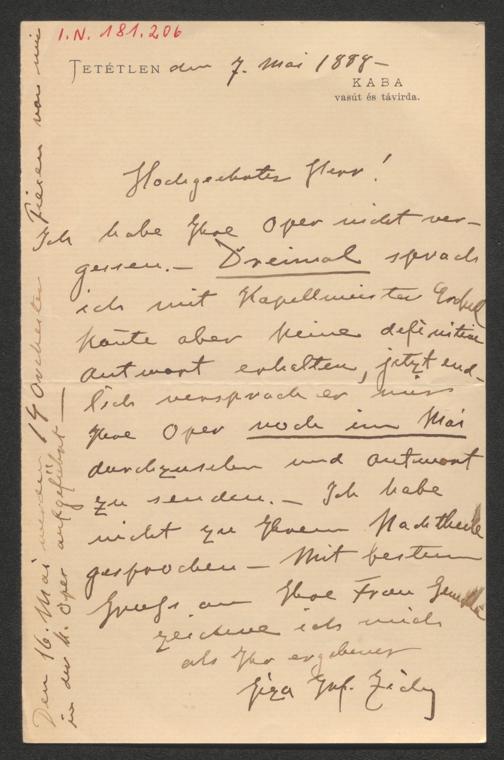 I.N. 181.206
TETÉTLEN den 7. Mai 1889-
KABA
vasút és távirda.
Hochgeehrter Herr!
Ich habe Ihre Oper nicht ver-
gessen. — Dreimal sprach
ich mit Kapellmeister
konte aber keine definitive
Antwort erhalten, jetzt end-
lich versprach er mir
Ihre Oper noch im Mai
durchzusehen und Antwort
zu senden. — Ich habe
nicht zu Ihrem Nachtheile
gesprochen — Mit bestem
Gruss an Ihre Frau Gemahlin
zeichne ich mich
als Ihr ergebener
Géza Grf. Zichy
Den 16. Mai werden 14 Orchester Piesen von mir
in der k. Oper aufgeführt —